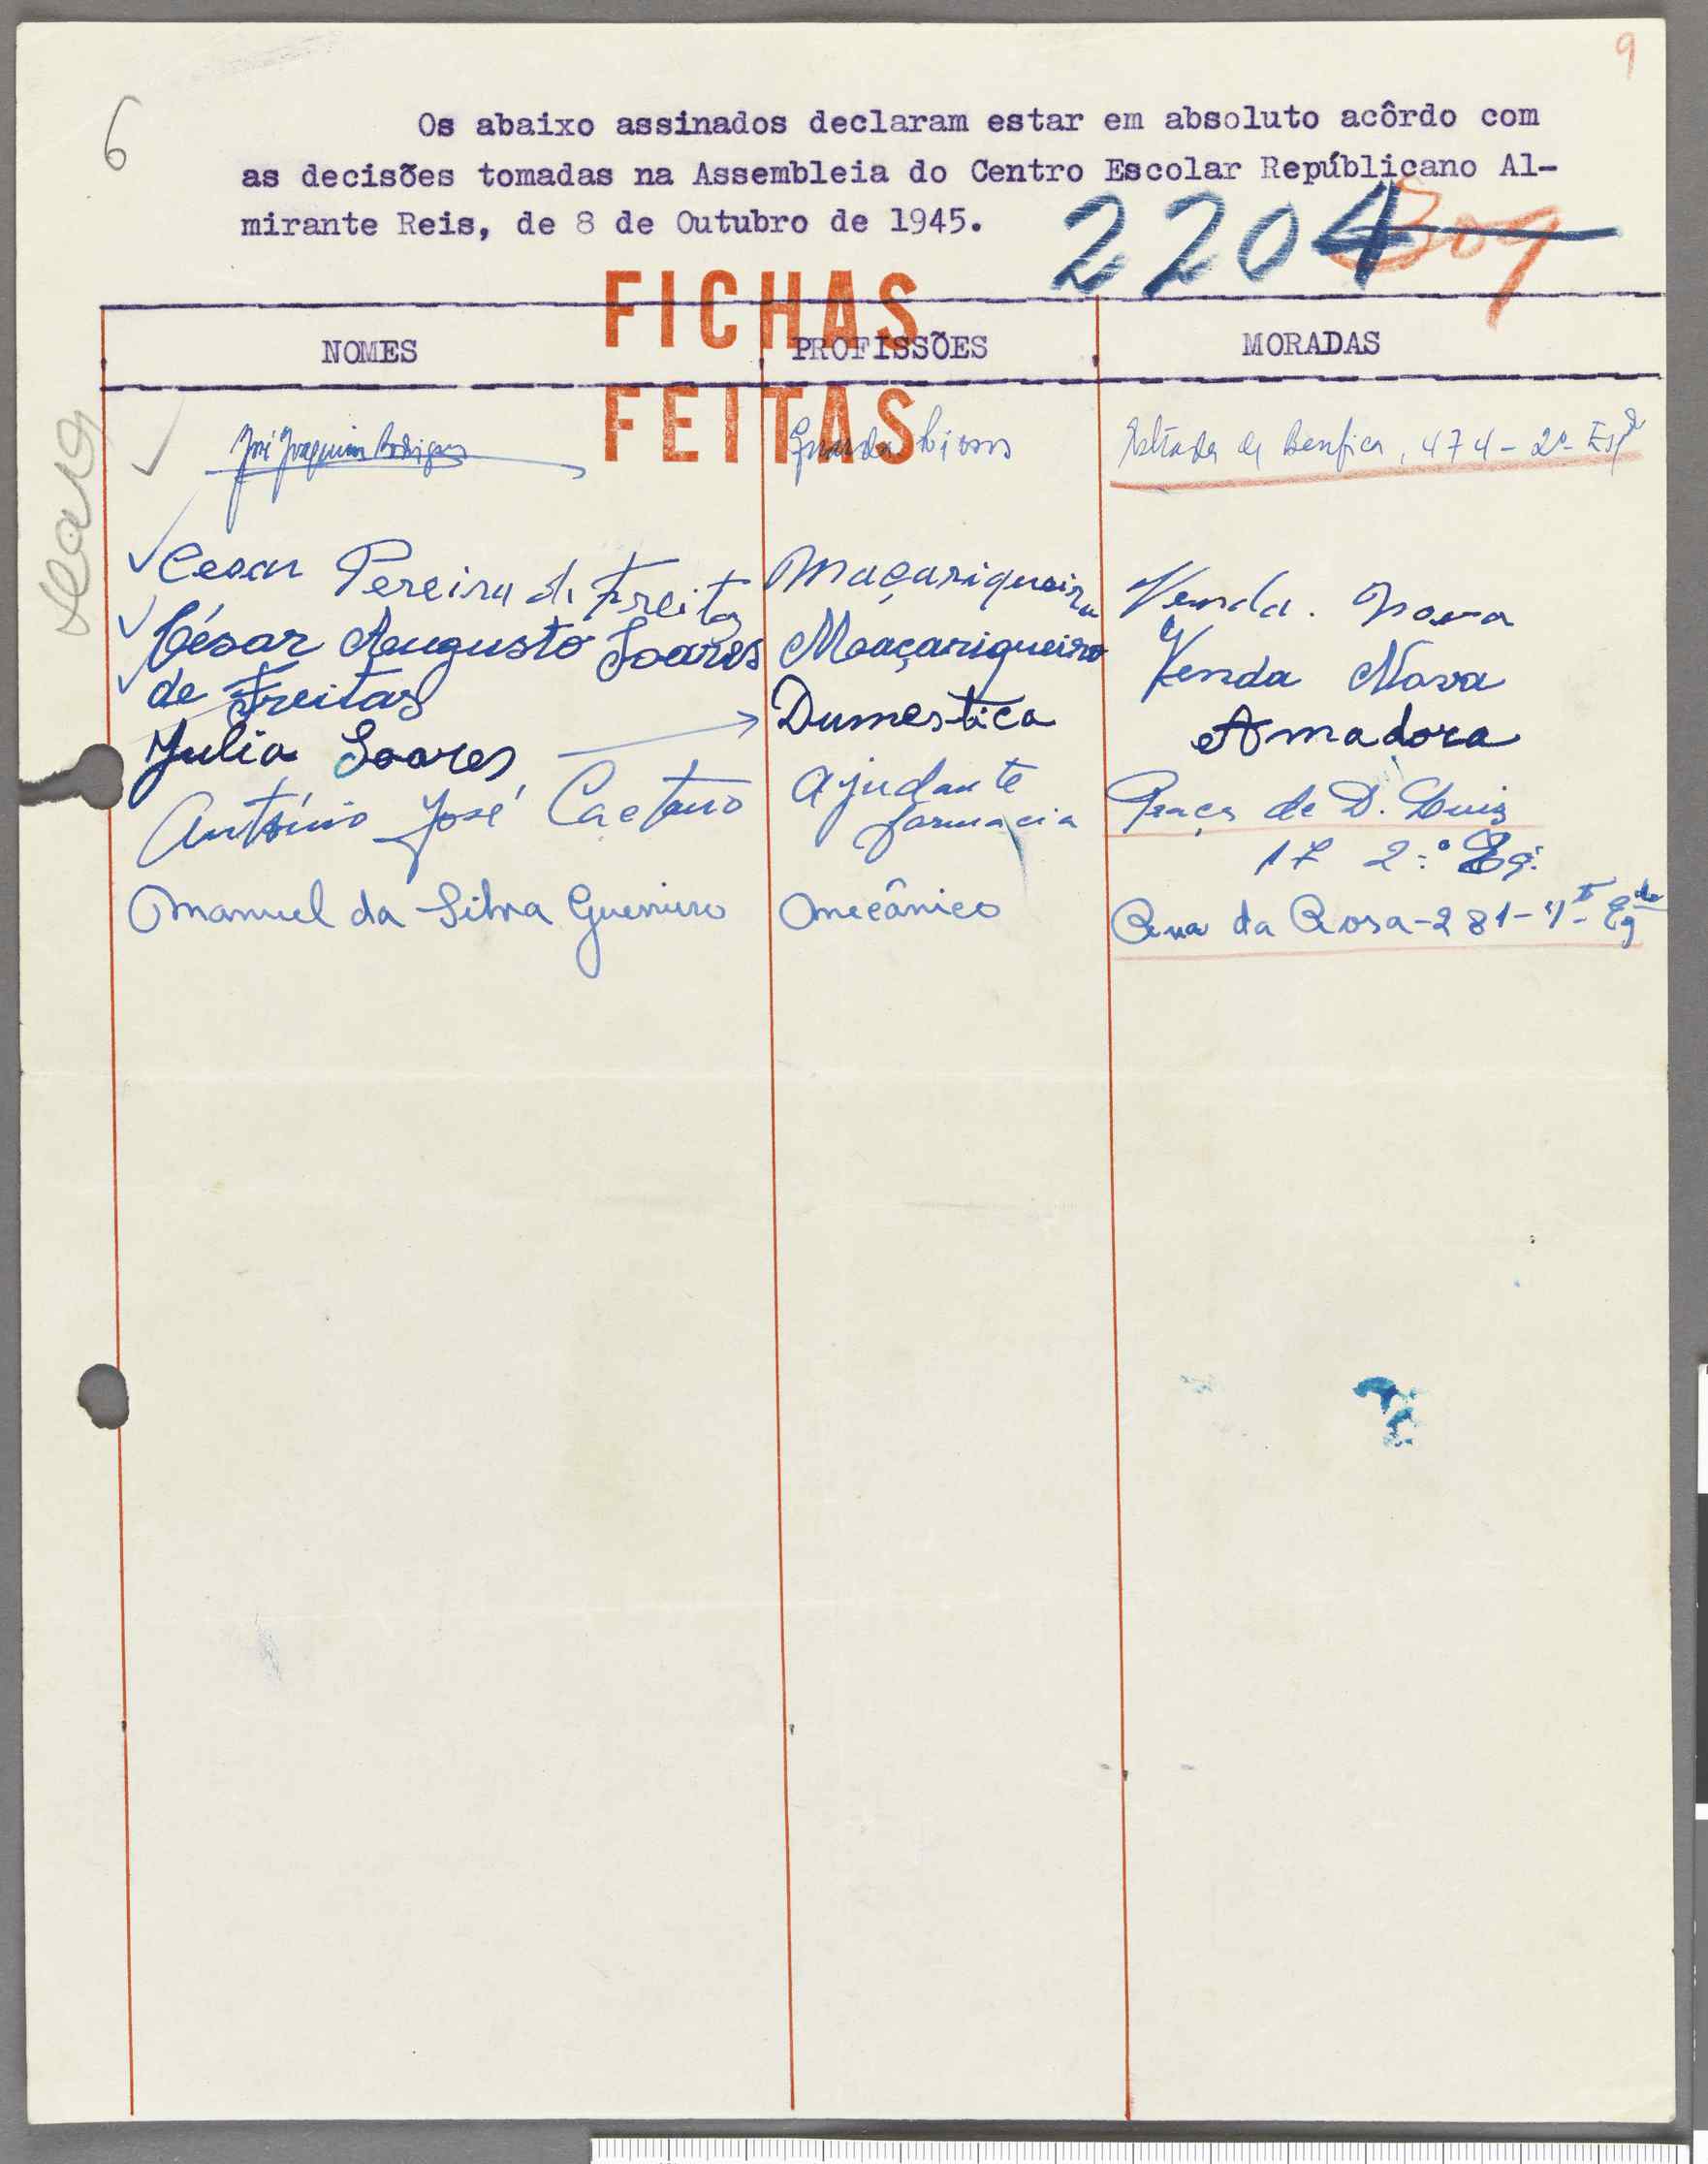 9
6
Os abaixo assinados declaram estar em absoluto acôrdo com
as decisões tomadas na Assembleia do Centro Escolar Repúblicano Al-
mirante Reis, de 8 de Outubro de 1945.
2204 309
FICHAS
NOMES PROFISSÕES MORADAS
FEITAS
José Joaquim Rodrigues Guarda livros Estrada de Benfica, 474-2º Esqº
Cesar Pereira de Freitas Maçariqueiro Venda. Nova
César Augusto Soares Maçariqueiro Venda Nova
de Freitas
Julia Soares Dumestica Amadora
António José Caetano Ajudante Praça de D. Luiz
farmacia 17 2.º Eq.
Manuel da Silva Guerreiro Mecânico Rua da Rosa-281-